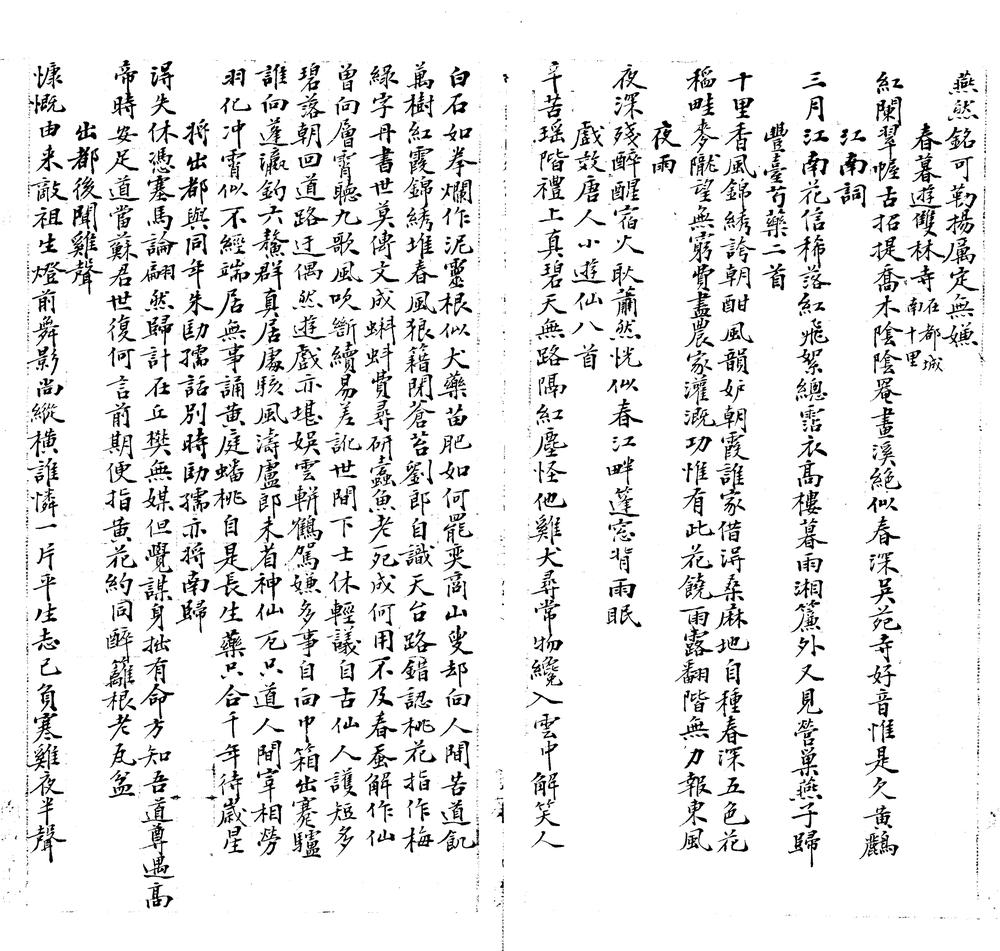 燕然銘可勒揚厲定無嫌
春暮遊雙林寺在都城南十里
紅闌翠幄古招提喬木陰陰罨畫溪絕似春深吳苑寺好音惟是欠黃鸝
江南詞
三月江南花信稀落紅飛絮總霑衣高樓暮雨湘簾外又見營巢燕子歸
豐臺芍藥二首
十里香風錦綉誇朝酣風韻妒朝霞誰家借得桑麻地自種春深五色花
稻畦麥隴望無窮費盡農家灌溉功惟有此花饒雨露翻階無力報東風
夜雨
夜深殘醉醒宿火耿蕭然恍似春江畔蓬窓背雨眠
戲效唐人小遊仙八首
辛苦瑶階禮上真碧天無路隔紅塵怪他雞犬尋常物纔入雲中解笑人
白石如拳爛作泥靈根似犬藥苗肥如何罷奕商山叟却向人間苦道飢
萬樹紅霞錦綉堆春風狼籍閉蒼苔劉郎自識天台路錯認桃花指作梅
綠字丹書世莫傳文成蝌蚪費尋研蠹魚老死成何用不及春蚕解作仙
曾向層霄聽九歌風吹斷續易差訛世間下士休輕議自古仙人護短多
碧落朝回道路迂偶然遊戲亦堪娛雲軿鶴駕嫌多事自向巾箱出蹇驢
誰向蓬瀛釣六鰲群真居處駭風濤盧郎未省神仙死只道人間宰相勞
羽化冲霄似不經端居無事誦黃庭蟠桃自是長生藥只合千年待歲星
將出都與同年朱劭孺話別時劭孺亦將南歸
得失休憑塞馬論翩然歸計在丘樊無媒但覺謀身拙有命方知吾道尊遇高
帝時安足道當蘇君世復何言前期便指黃花約同醉籬根老瓦盆
出都後聞雞聲
慷慨由来敵祖生燈前舞影尚縱橫誰憐一片平生志已負寒雞夜半聲